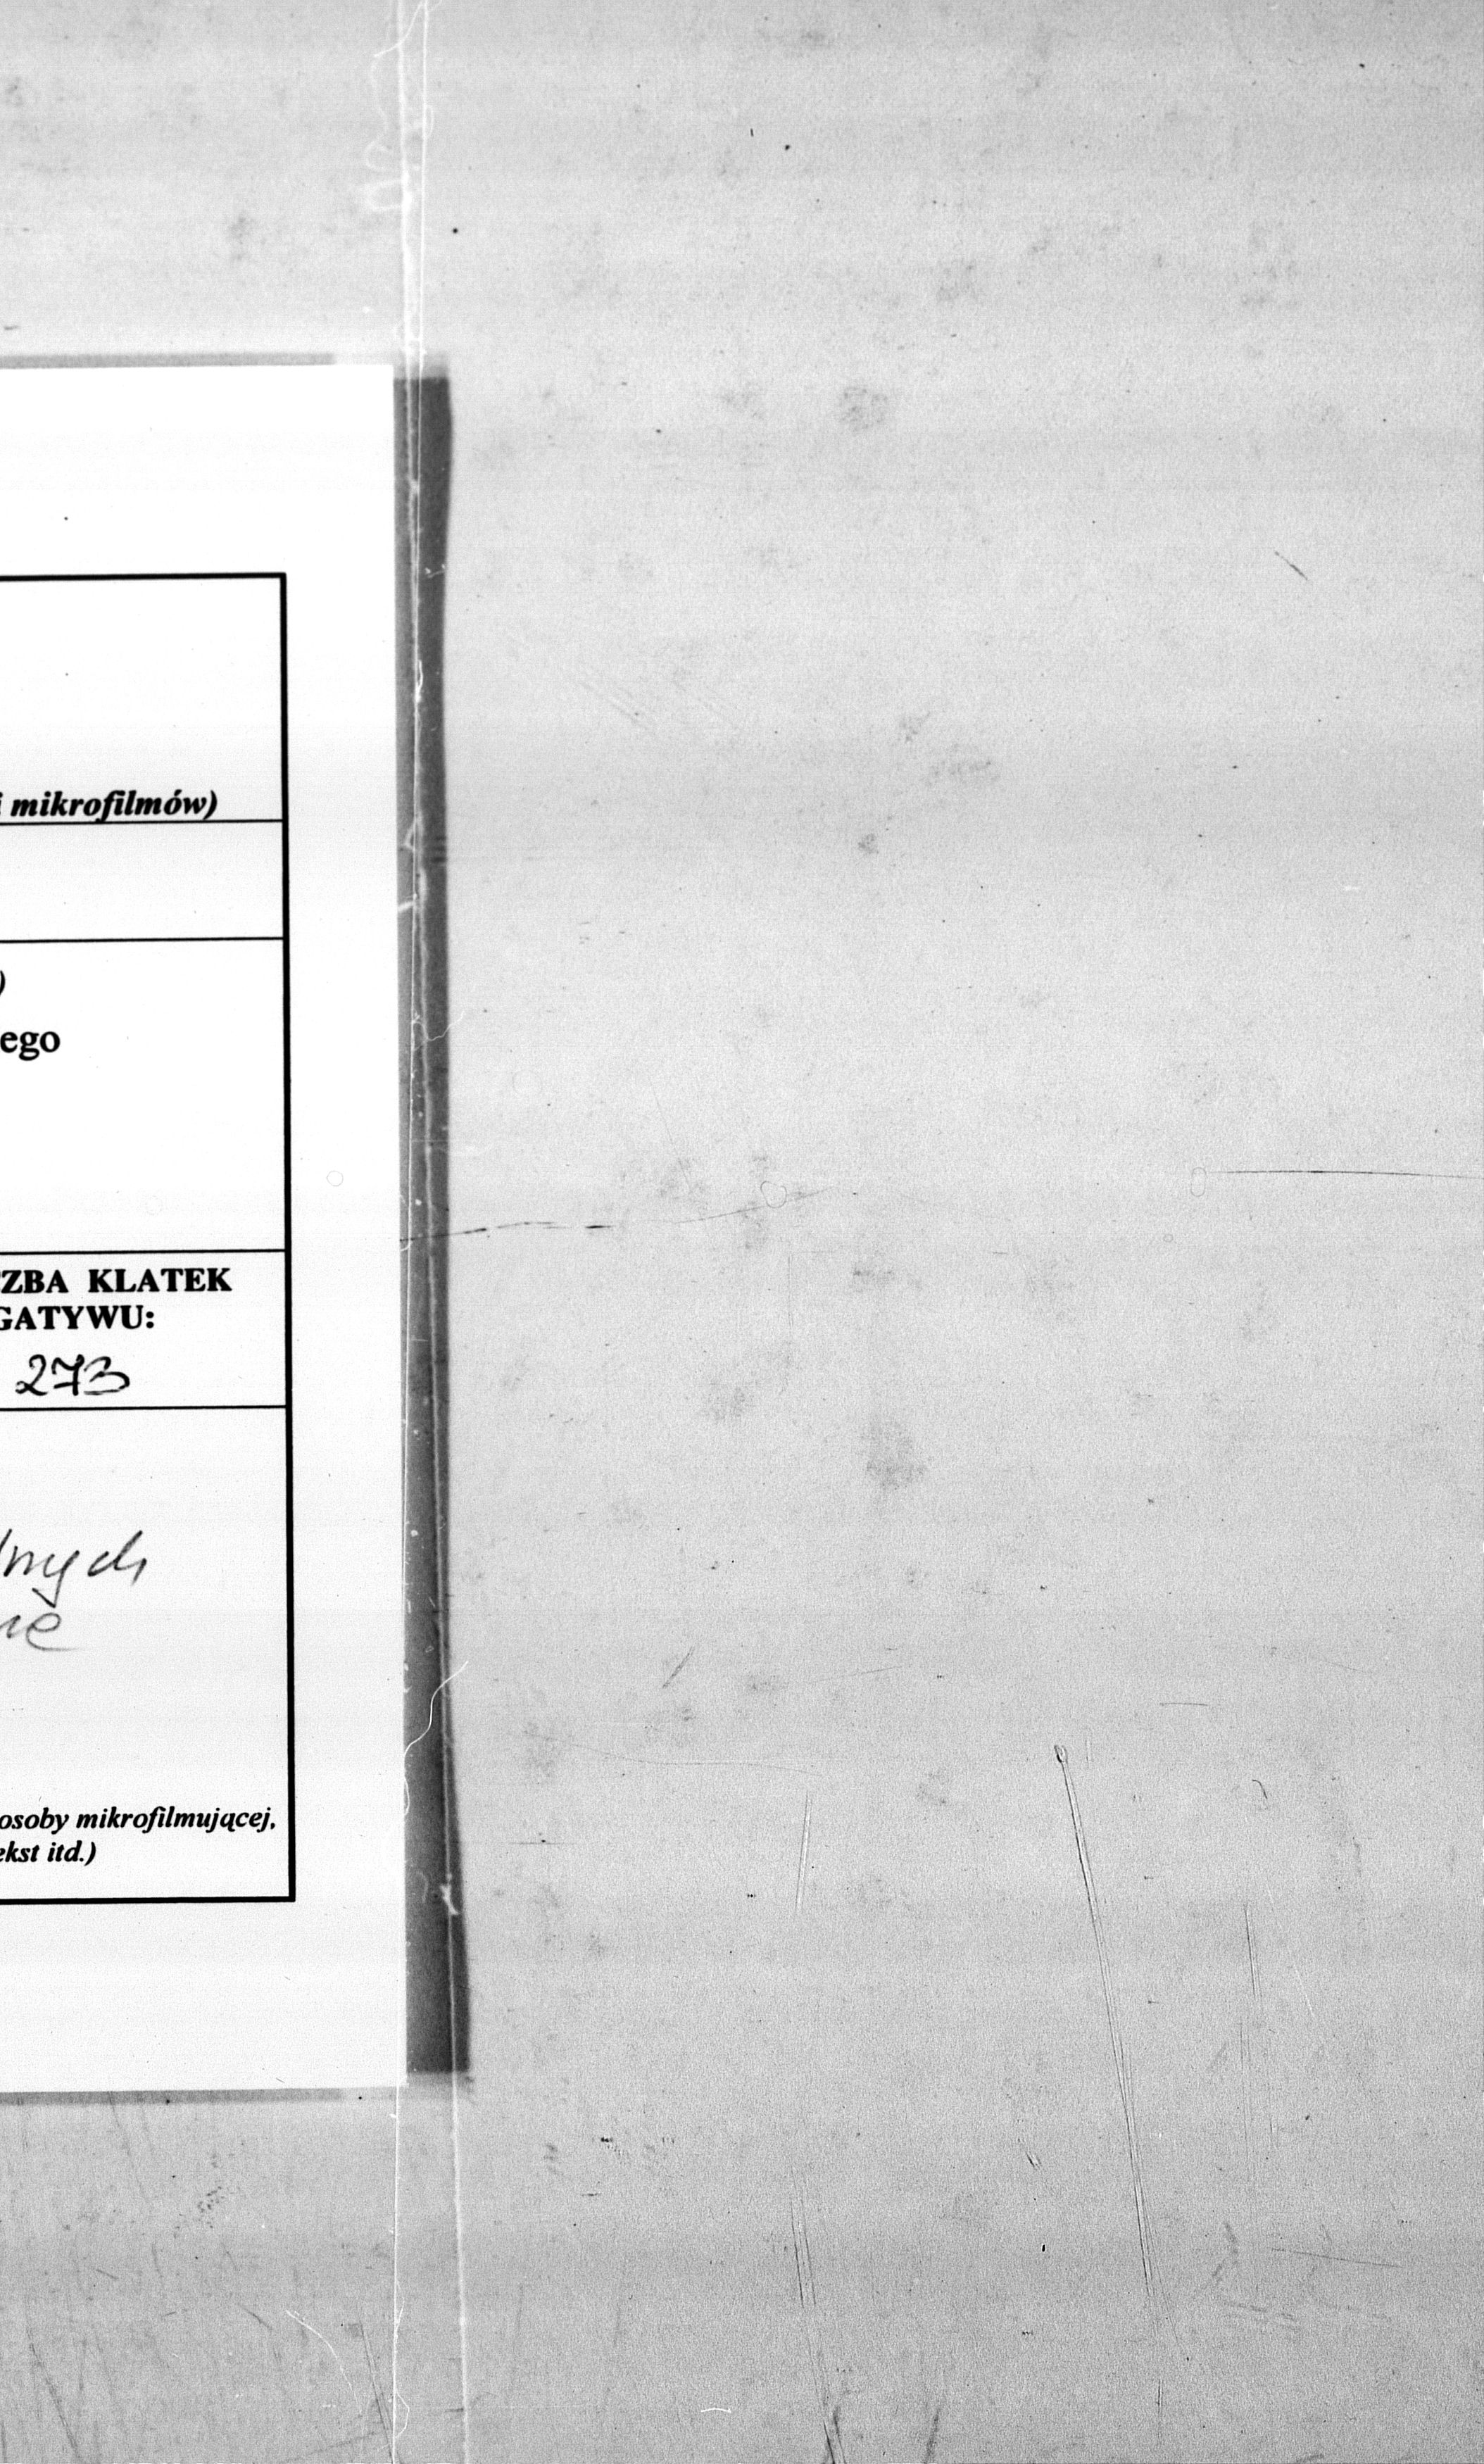 i mikrofilmów)
)
ego
ZBA KLATEK
GATYWU:
273
nych
ne
osoby mikrofilmującej,
ekst itd.)